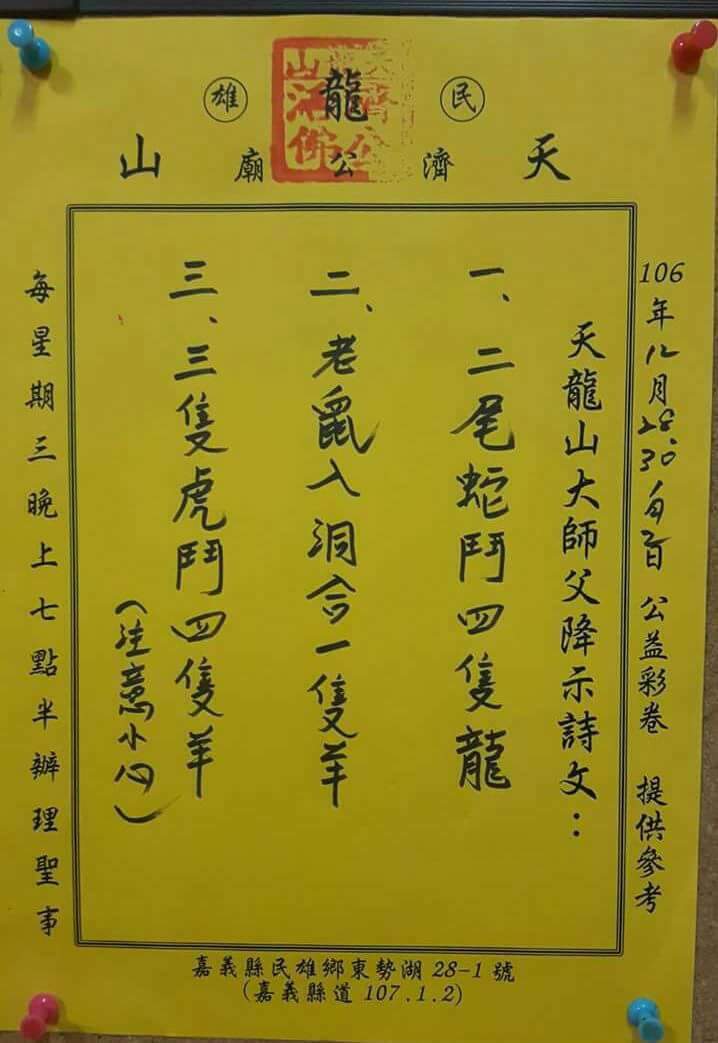 民雄
天龍山
濟公廟
106年12月28.30 公益彩卷 提供參考
天龍山大師父降示詩文：
一、二尾蛇鬥四隻龍
二、老鼠入洞合一隻羊
三、三隻虎鬥四隻羊
（注意小心）
每星期三晚上七點半辦理聖事
嘉義縣民雄鄉東勢湖 28-1 號
(嘉義縣道 107.1.2)